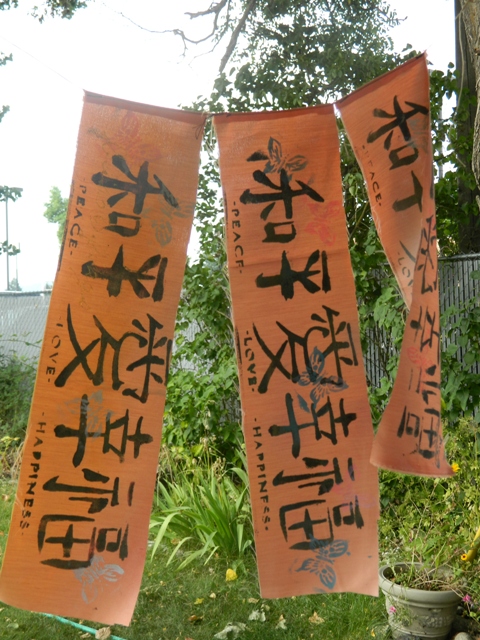 和平
愛
幸福
PEACE
LOVE
HAPPINESS
和平
愛
幸福
-PEACE-
-LOVE-
-HAPPINESS-
和平
幸福
-PEACE-